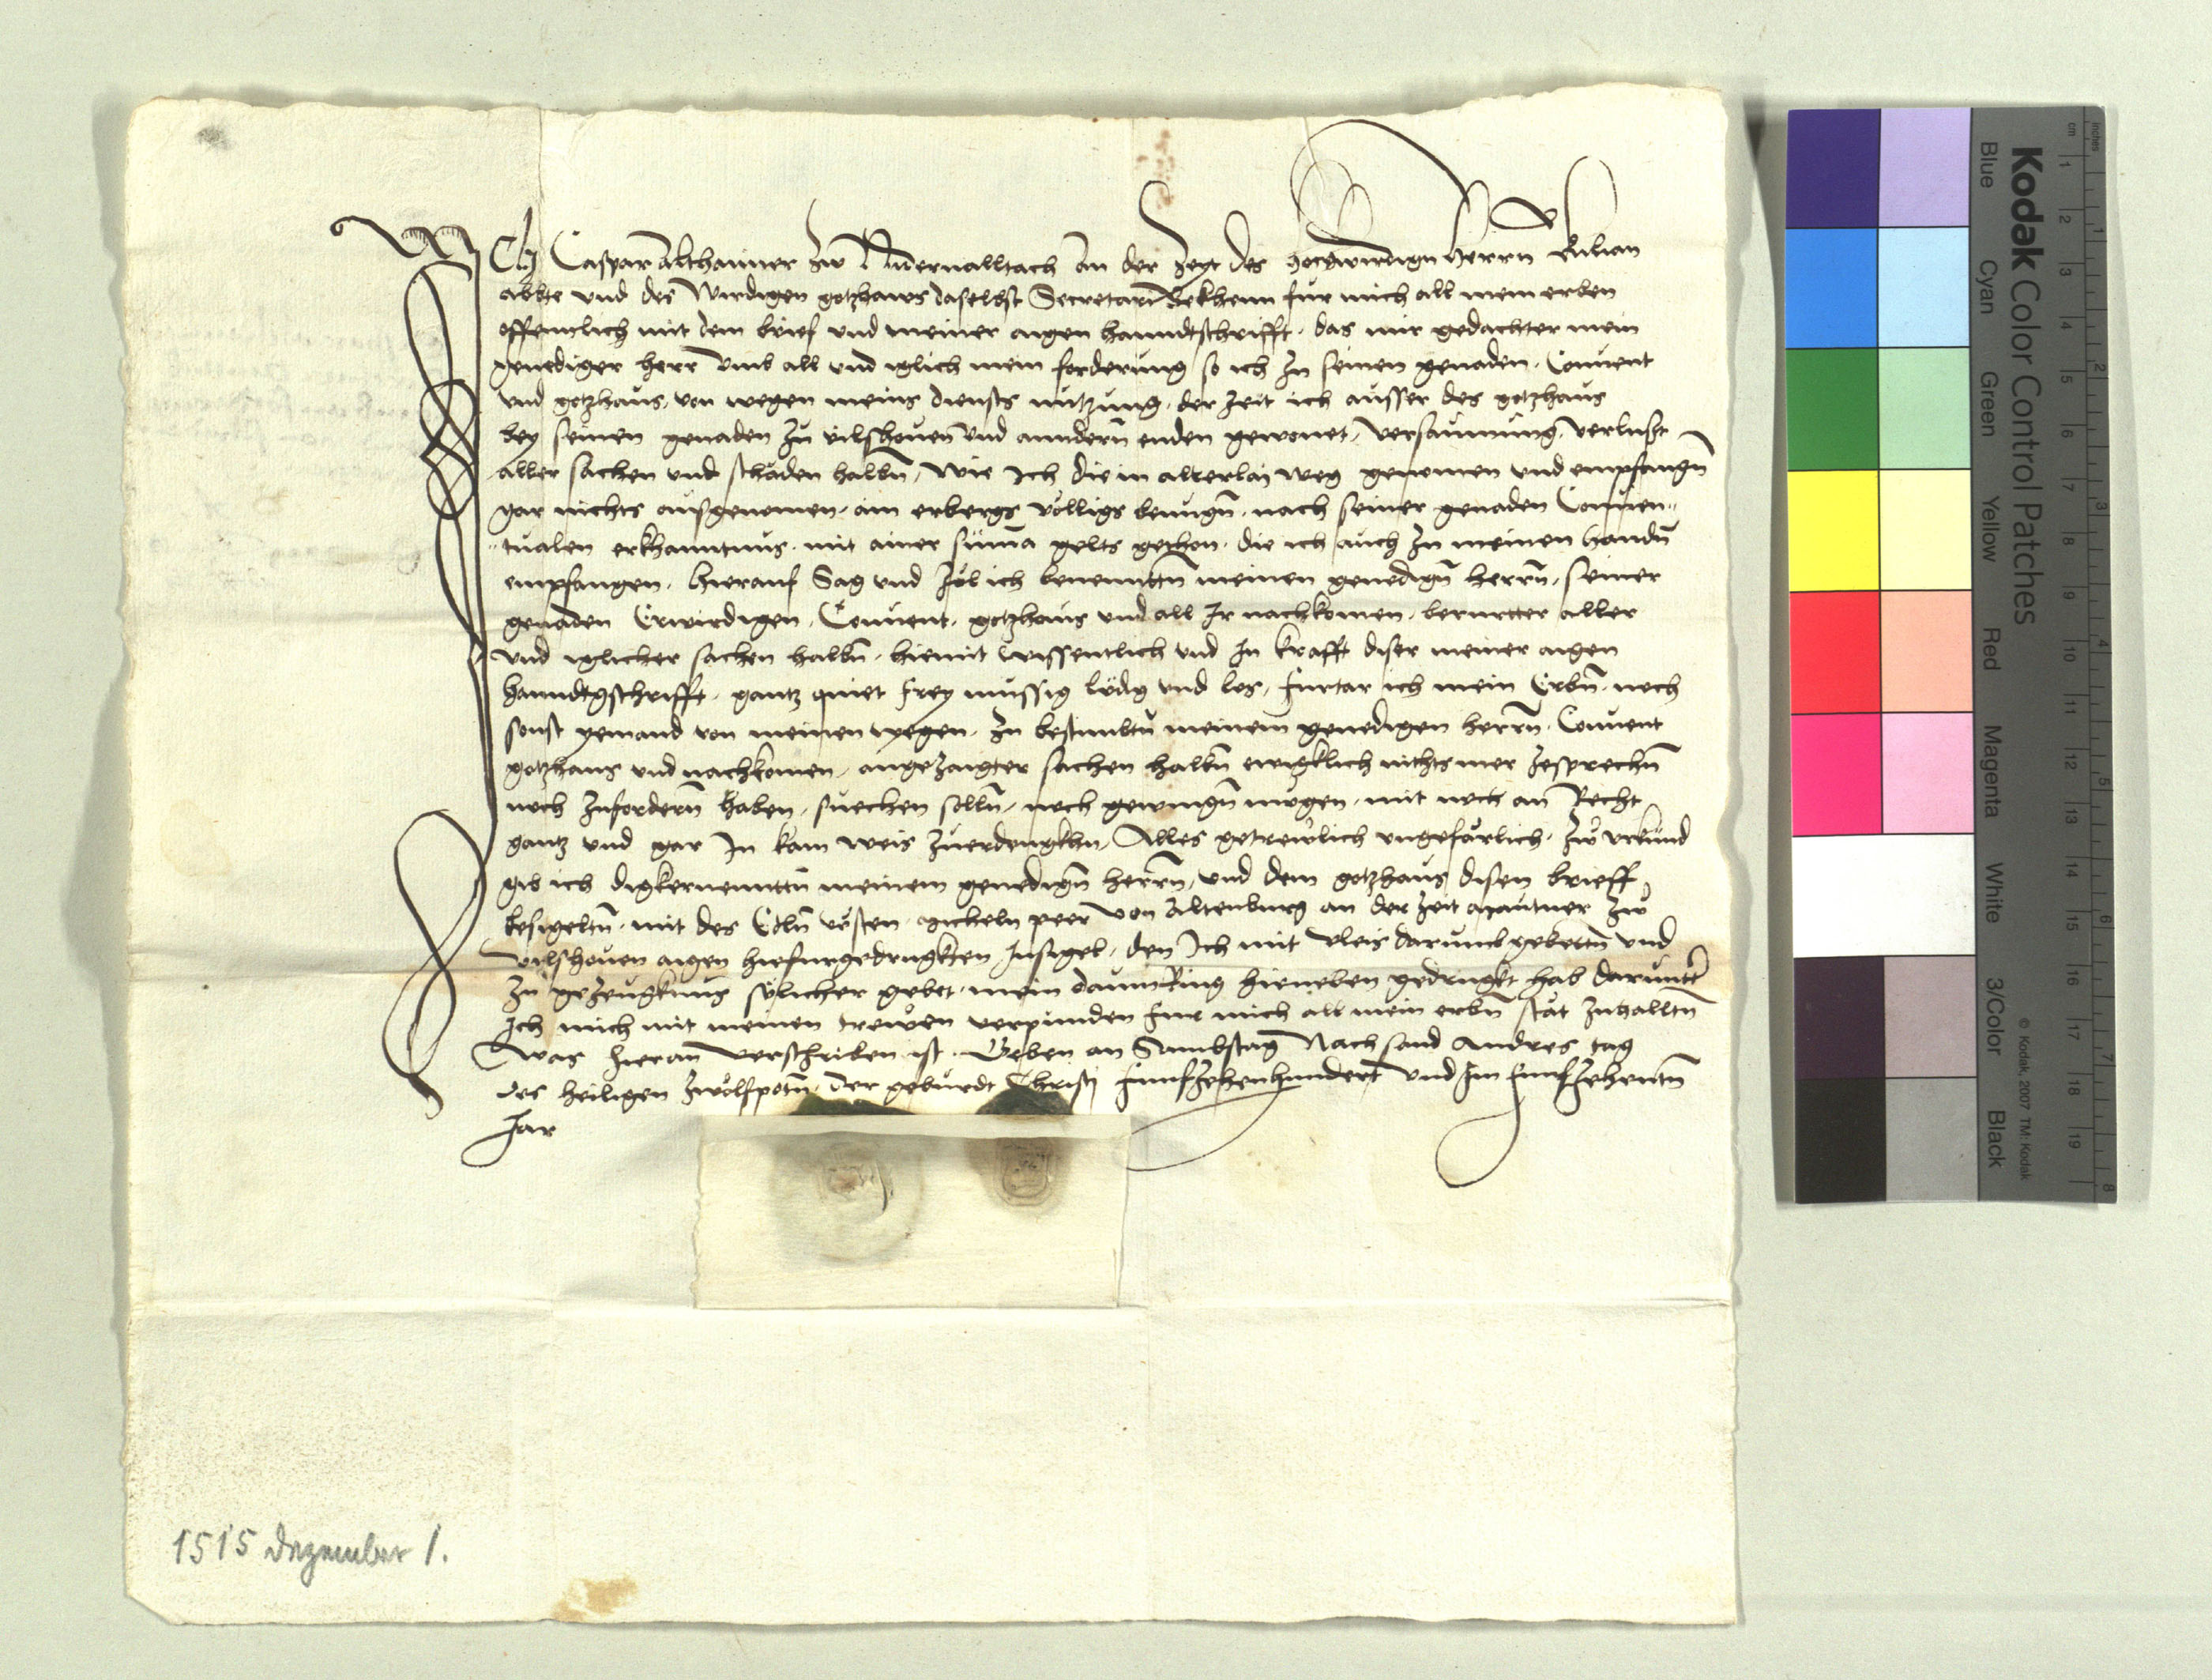 Ich Caspar Althaimer zw Nidernalltach an der Zeyt des hochwirdign herrn Kilian
abbte vnd des wirdigen gotzhaws daselbst Secretari Bekhenn fur mich all mein erben
offennlich mit dem brief vnd meiner aigen hanndtschrifft. das mir gedachter mein
genediger herr vmb all vnd iglich mein forderung so ich zu seinen genaden. Conuent
vnd gotzhaus, von wegen meins diensts nutzung. der zeit ich ausser des gotzhaus
bey seinen genaden zu vilshouen vnd anndern enden gewonet, versaumung, verlust
aller sachen vnd schäden halbn, wie Ich die in allerlaj weg genomen vnd empfangn
gar nichts ausgenomen. ain erbergs völligs benuegn. nach seiner genaden Conuen-
tualen erkhanntnus. mit ainer summa gelts gethon. die ich auch zu meinen handn
empfangen. Hierauf Sag vnd zel ich benenntn meinen genedign herrn, seiner
genaden Erwirdigen, Conuent. gotzhaus vnd all Ir nachkomen. berurtter aller
vnd iglicher sachen halbn. hiemit wissentlich vnd in krafft diser meiner aigen
hanndtgschrifft. gantz quiet frey mussig ledig vnd los, furtar ich mein Erbn. noch
sonst yemand von meinen wegen. zu bestimbtn meinem genedigen herrn. Conuent
gotzhaus vnd nachkomen, angezaigter sachen halbn ewigklich nichts mer zesprechn
noch zufordern haben, suechen solln, noch gewingn mögen. mit noch an Recht
gantz vnd gar In kain weis zuerdengkhn, Alles getrewlich vngefärlich. zw vrkund
gib ich digkernenntn meinem genedign herrn, vnd dem gotzhaus disen brieff
besigeltn. mit des Edln vesten micheln peer von Altenburg an der zeit mautner zw
vilshouen aigen hiefurgedrugkten Insigel. den Ich mit vleis darumb gebettn vnd
zu gezeugknus sölicher gebet. mein daum Ring hieneben gedrugkt hab darunter
Ich mich mit meinen trewen verpinden fur mich all mein erbn stät zuhalltn
Was hieran verschriben ist. Geben an Sambstag Nach sand Andres tag
des heiligen zwölfpotn. der geburdt Christj funfzehenhundert vnd Im funfzehentn
Jar
1515 Dezember 1.
Kodak Color Control Patches
Blue
Cyan
Green
Yellow
Red
Magenta
White
3/Color
Black
© Kodak, 2007 TM: Kodak
cm 1 2 3 4 5 6 7 8 9 10 11 12 13 14 15 16 17 18 19
inches 1 2 3 4 5 6 7 8